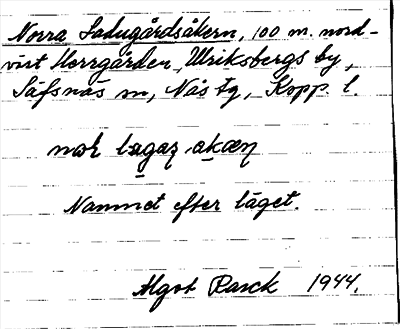 Norra Ladugårdsåkern, 100 m. nord-
väst Herrgården, Ulriksbergs by,
Säfsnäs sn, Nås tg, Kopp. l.
Namnet efter läget.
Algot Rasck 1944.